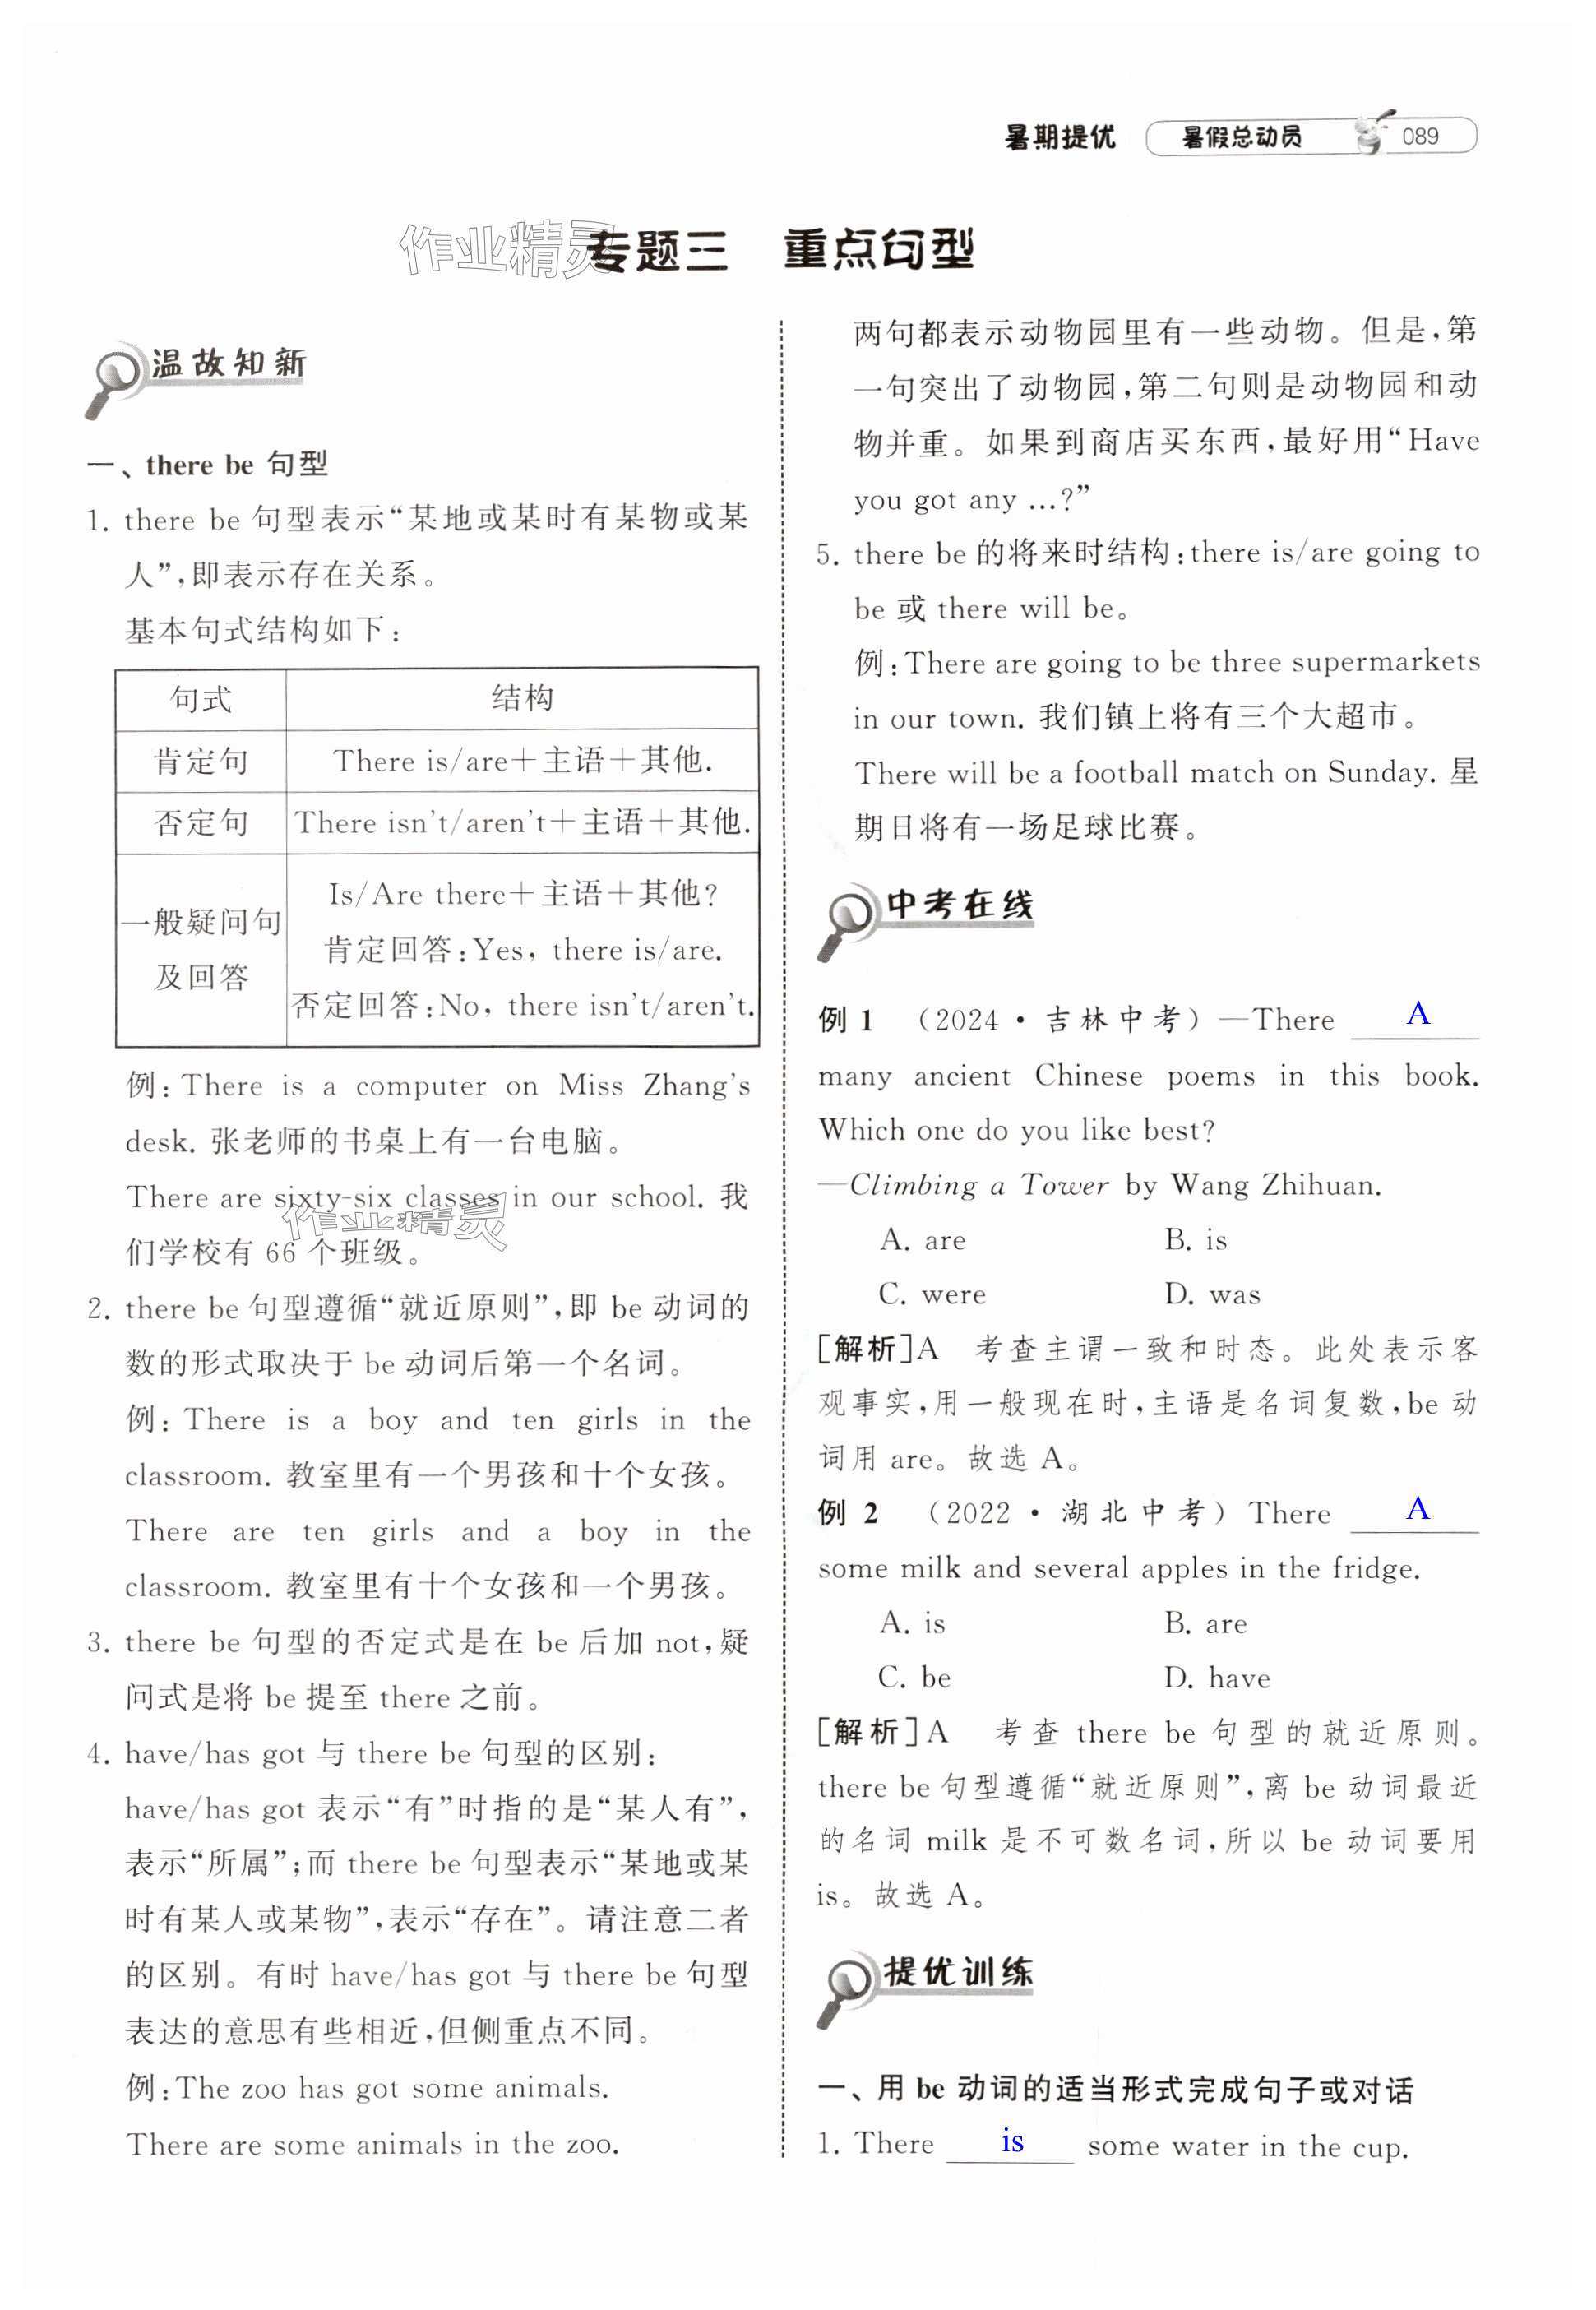 暑期提优 暑假总动员 089
作业精灵
专题三 重点句型
温故知新
一、there be 句型
1. there be 句型表示“某地或某时有某物或某
人”,即表示存在关系。
基本句式结构如下:
句式 结构
肯定句 There is/are+主语+其他.
否定句 There isn't/aren't+主语+其他.
一般疑问句
及回答
Is/Are there+主语+其他?
肯定回答:Yes, there is/are.
否定回答:No, there isn't/aren't.
例: There is a computer on Miss Zhang's
desk. 张老师的书桌上有一台电脑。
There are sixty-six classes in our school. 我
作业精灵
们学校有 66 个班级。
2. there be 句型遵循“就近原则”,即 be 动词的
数的形式取决于 be 动词后第一个名词。
例: There is a boy and ten girls in the
classroom. 教室里有一个男孩和十个女孩。
There are ten girls and a boy in the
classroom. 教室里有十个女孩和一个男孩。
3. there be 句型的否定式是在 be 后加 not,疑
问式是将 be 提至 there 之前。
4. have/has got 与 there be 句型的区别:
have/has got 表示“有”时指的是“某人有”,
表示“所属”;而 there be 句型表示“某地或某
时有某人或某物”,表示“存在”。请注意二者
的区别。有时 have/has got 与 there be 句型
表达的意思有些相近,但侧重点不同。
例:The zoo has got some animals.
There are some animals in the zoo.
两句都表示动物园里有一些动物。但是,第
一句突出了动物园,第二句则是动物园和动
物并重。如果到商店买东西,最好用“Have
you got any …?”
5. there be 的将来时结构:there is/are going to
be 或 there will be。
例:There are going to be three supermarkets
in our town. 我们镇上将有三个大超市。
There will be a football match on Sunday. 星
期日将有一场足球比赛。
中考在线
例 1 (2024·吉林中考)—There A
many ancient Chinese poems in this book.
Which one do you like best?
—Climbing a Tower by Wang Zhihuan.
A. are B. is
C. were D. was
[解析]A 考查主谓一致和时态。此处表示客
观事实,用一般现在时,主语是名词复数,be 动
词用 are。故选 A。
例 2 (2022·湖北中考) There A
some milk and several apples in the fridge.
A. is B. are
C. be D. have
[解析]A 考查 there be 句型的就近原则。
there be 句型遵循“就近原则”,离 be 动词最近
的名词 milk 是不可数名词,所以 be 动词要用
is。故选 A。
提优训练
一、用 be 动词的适当形式完成句子或对话
1. There is some water in the cup.